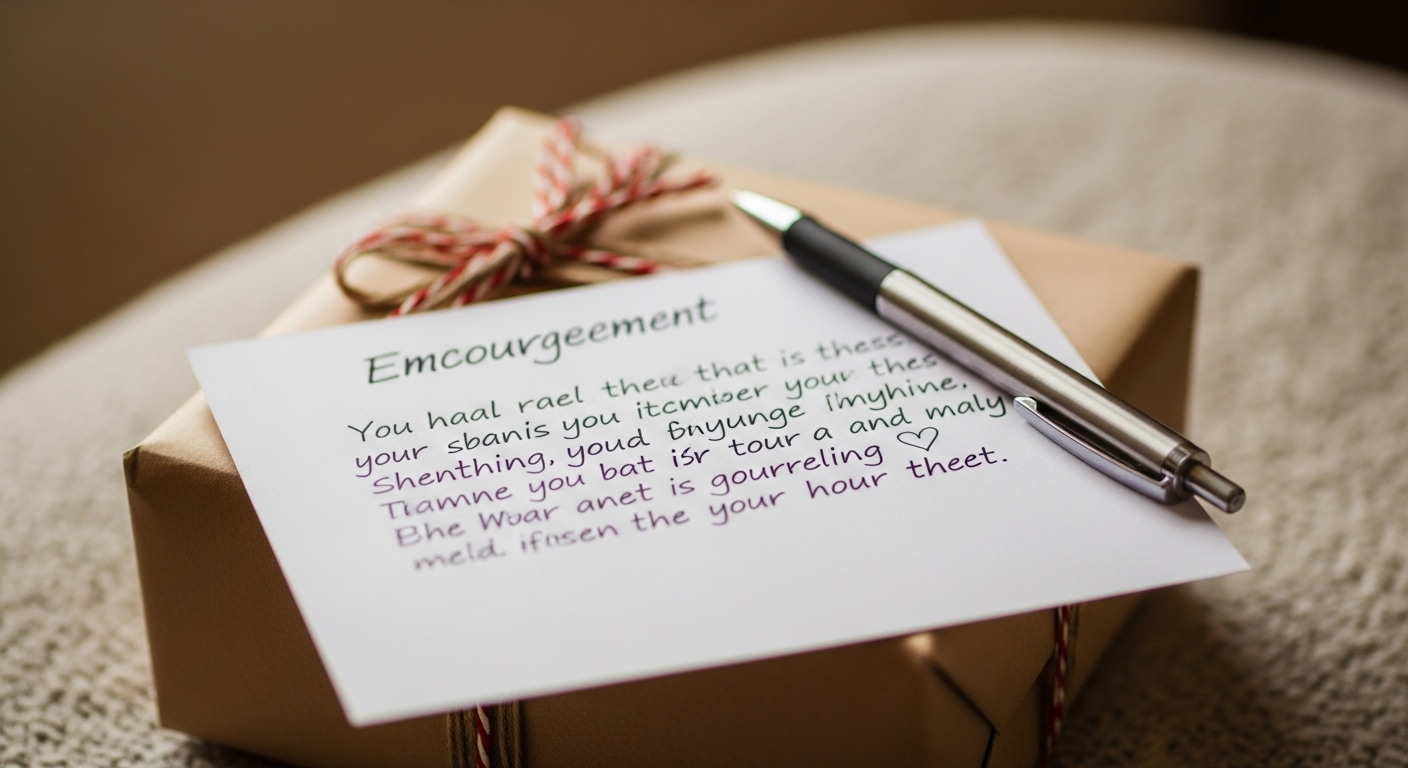 Emcourgeement
You haal rael that is thess
your sbanis you itcmiber your thes
Shenthing, youd Enyunge imyhine.
Tiamne you bat isr tour a and maly
Bhe Woar anet is gourreling ♡
meld. the your hour theet.